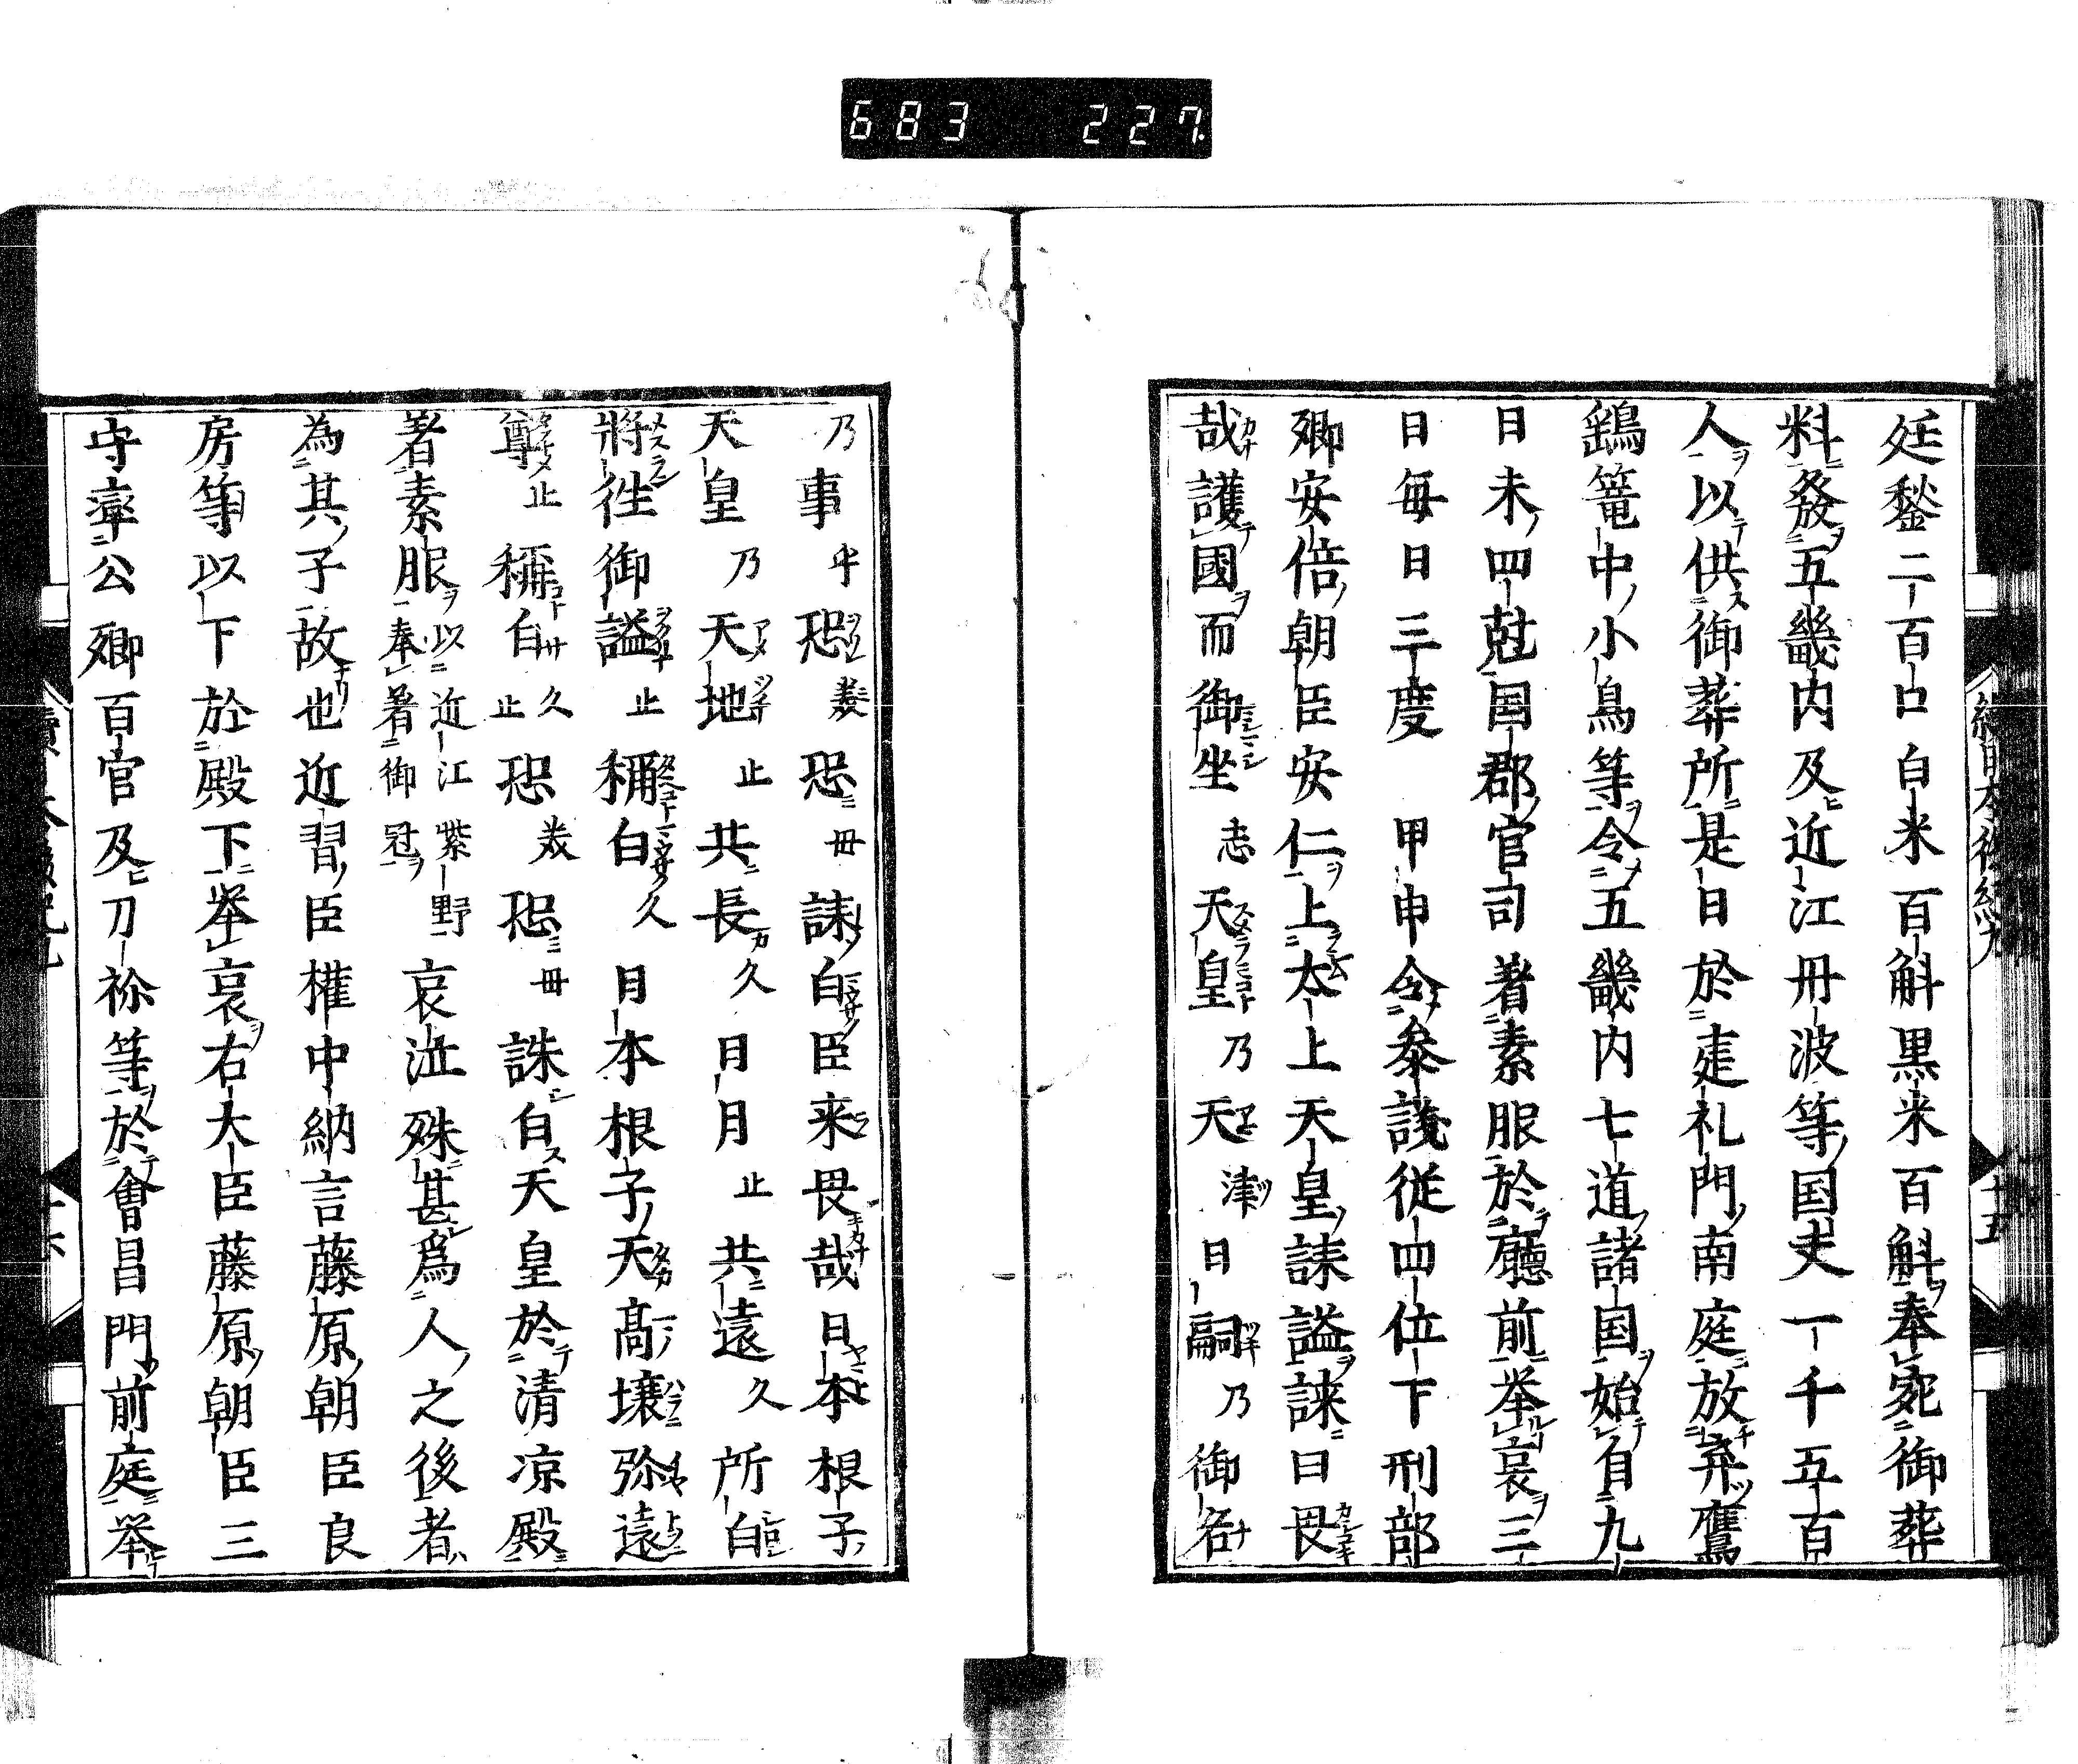 683 227
廷鍫二百口白米百斛黒米百斛奉宛御葬
料發五畿内及近江丹波等国夫一千五百
人以供御葬所是日於建礼門南庭放弃鷹
鷂篭中小鳥等令五畿内七道諸国始自九
日未四尅国郡官司着素服於廳前举哀三
日毎日三度 甲申令参議従四位下刑部
卿安倍朝臣安仁上太上天皇誄謚誄曰畏
哉護國而御坐志天皇乃天津日嗣乃御名
乃事乎恐美恐母誄白臣来畏哉日本根子
天皇乃天地止共長久日月止共遠久所白
將徃御謚止稱白久日本根子天髙壌弥遠
尊止稱白久止恐美恐母誄白天皇於清凉殿
着素服以近江紫野奉着御冠哀泣殊甚爲人之後者
為其子故也近習臣權中納言藤原朝臣良
房等以下於殿下举哀右大臣藤原朝臣三
守率公卿百官及刀祢等於會昌門前庭举